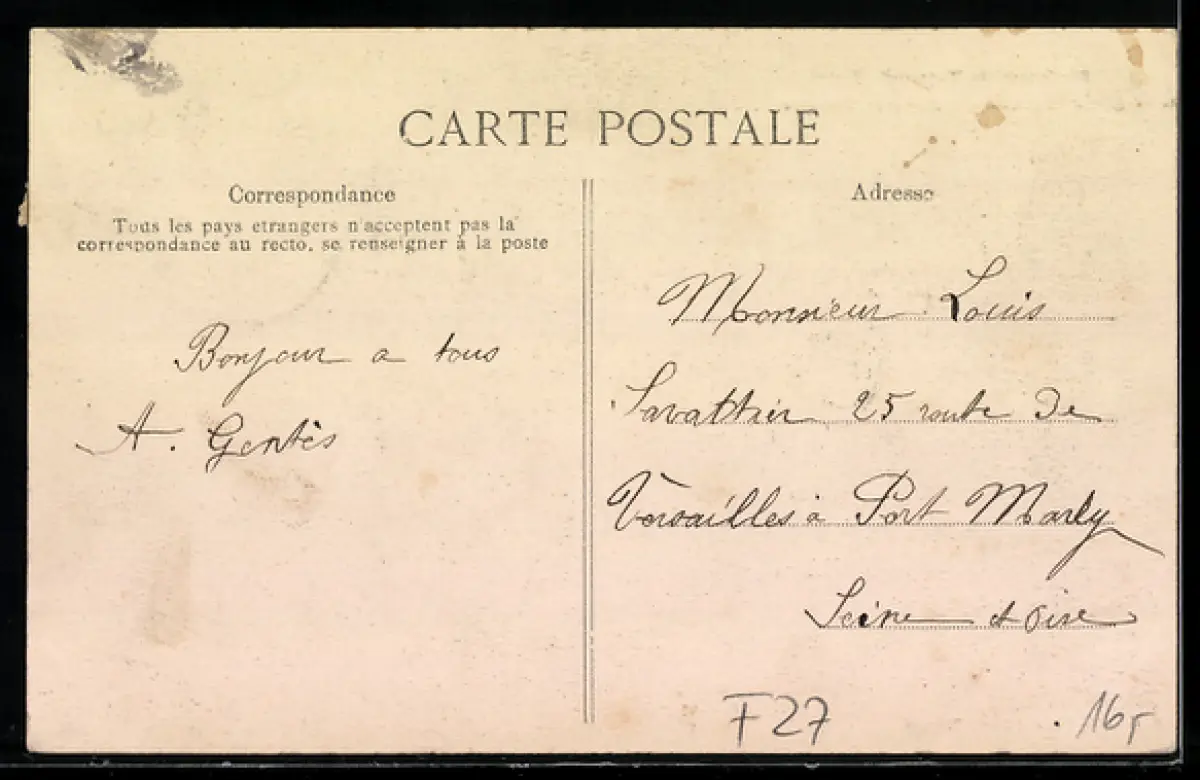 CARTE POSTALE
Correspondance
Tous les pays etrangers n'acceptent pas la
correspondance au recto, se renseigner à la poste
Bonjour a tous
A. Gentès
Adresse
Monsieur Louis
Savattier 25 route De
Versailles à Port Marly
Seine et Oise
F27
16,-